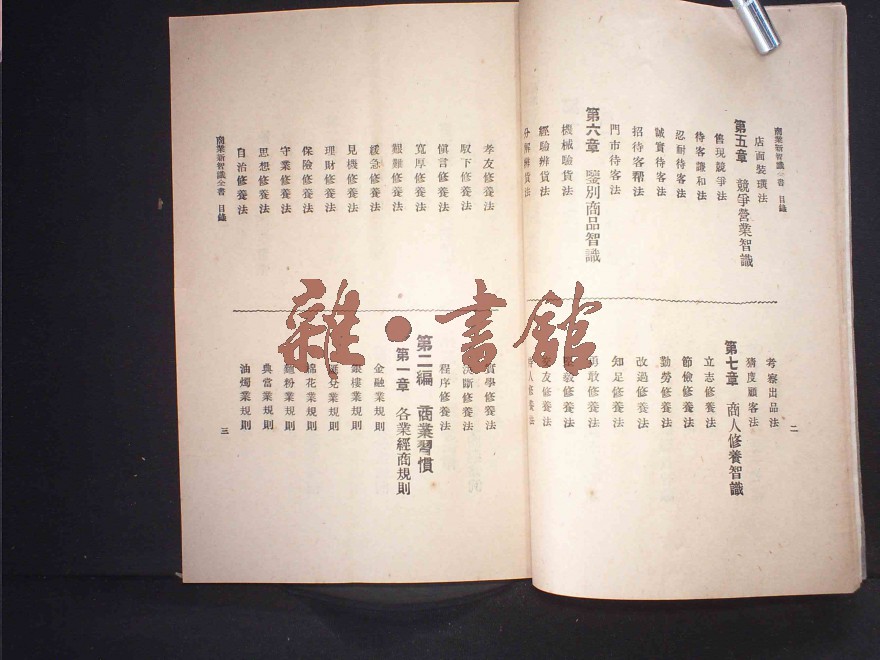 商業新智識全書 目錄
二
店面裝璜法
第五章 競爭營業智識
售現競爭法
待客謙和法
忍耐待客法
誠實待客法
招待客幫法
門市待客法
第六章 鑒別商品智識
機械驗貨法
經驗辨貨法
分解辨貨法
考察出品法
猜度顧客法
第七章 商人修養智識
立志修養法
節儉修養法
勤勞修養法
改過修養法
知足修養法
勇敢修養法
毅修養法
友修養法
人修養法
孝友修養法
馭下修養法
愼言修養法
寬厚修養法
艱難修養法
緩急修養法
見機修養法
理財修養法
保險修養法
守業修養法
思想修養法
自治修養法
實學修養法
決斷修養法
程序修養法
第二編 商業習慣
第一章 各業經商規則
金融業規則
銀樓業規則
匯兌業規則
棉花業規則
麵粉業規則
典當業規則
油燭業規則
商業新智識全書 目錄
三
雜·書館